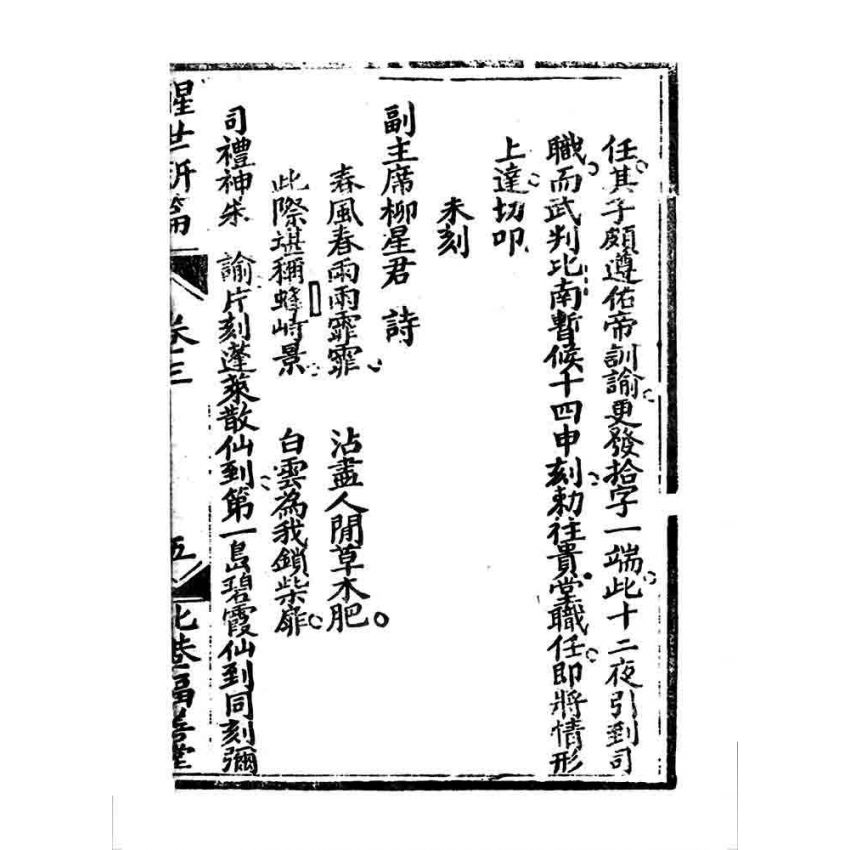 任其子頗遵佑帝訓諭更發拾字一端此十二夜引到司
職而武判比南暫候十四申刻勅往貴堂職任即將情形
上達切叩
未刻
副主席柳星君 詩
春風春雨雨霏霏 沾盡人間草木肥
此際堪稱蟳崎景 白雲為我鎖柴扉
司禮神朱 諭片刻蓬萊散仙到第一島碧霞仙到同刻彌
醒世新篇 卷三 五 北巷福善堂